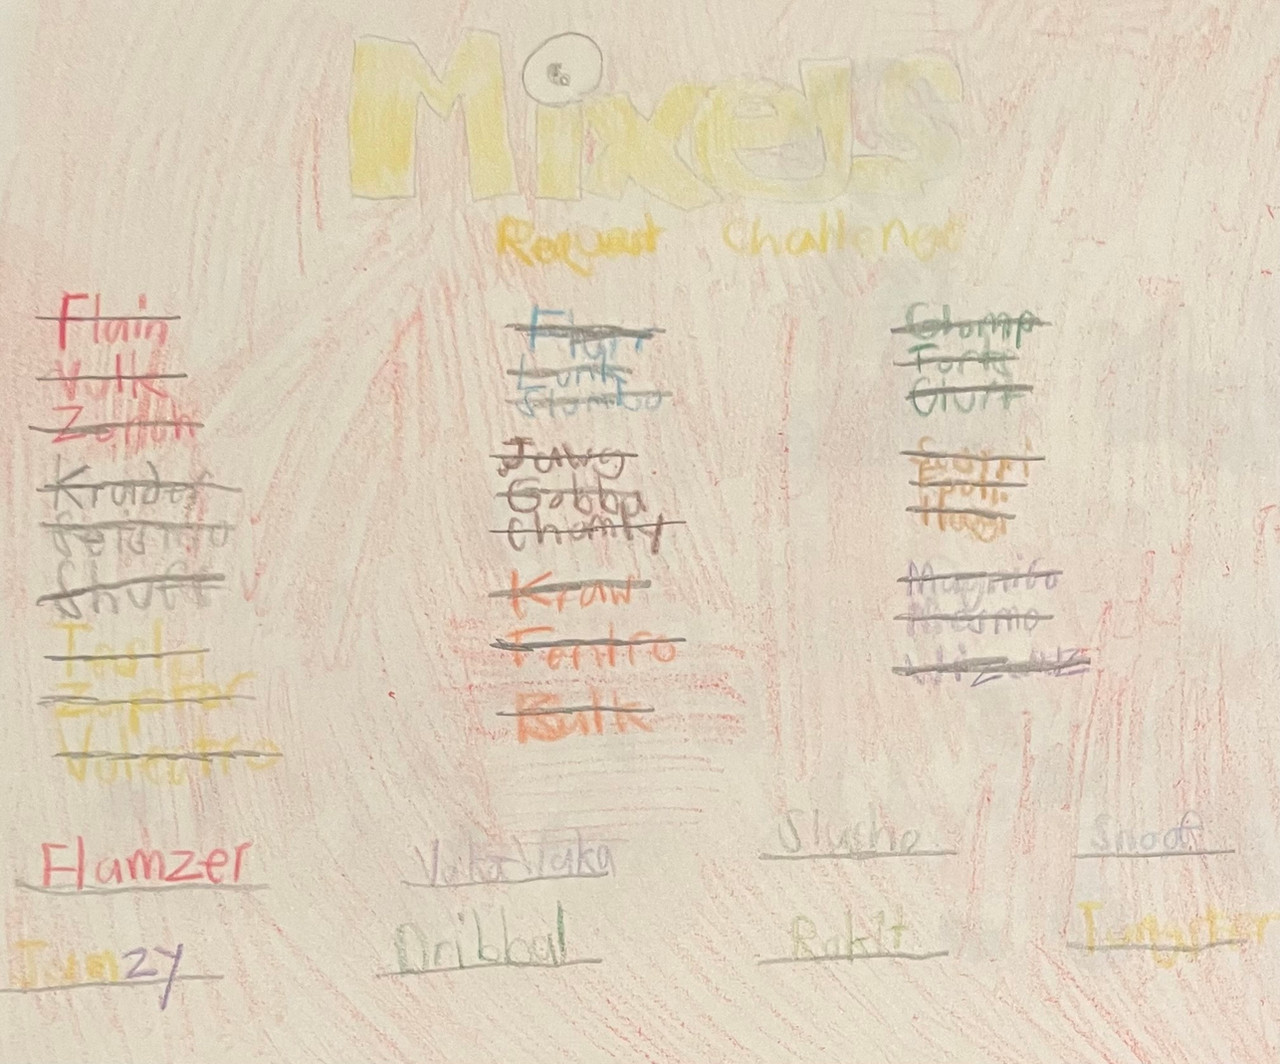 Mixels
Request Challenge
Flain
Vulk
Zorch
Krader
Seismo
Shuff
Teslo
Zaptor
Volectro
Flurr
Lunk
Slumbo
Jawg
Gobba
Chomly
Kraw
Tentro
Balk
Glomp
Torts
Glurt
Footi
Hoogi
Magnifo
Mesmo
Wizwuz
Flamzer
VakaWaka
Slusho
Snoof
Jamzy
Dribbal
Rokit
Tungster